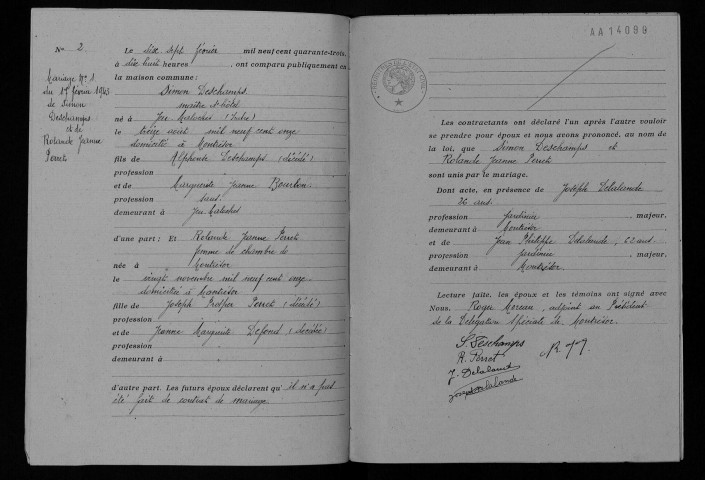 No 2.
Mariage No 1.
du 17 février 1943
de Simon
Deschamps
et de
Rolande Jeanne
Perret
Le dix sept février mil neuf cent quarante-trois,
à dix huit heures, ont comparu publiquement en
la maison commune:
Simon Deschamps
maître d'hôtel
né à Jeu Maloches (Indre)
le treize août mil neuf cent onze
domicilié à Montrésor
fils de Alphonse Deschamps (décédé)
profession
et de Marguerite Jeanne Bourbon
profession sans
demeurant à Jeu Maloches
d'une part: Et Rolande Jeanne Perret
femme de chambre
née à Montrésor
le vingt novembre mil neuf cent onze
domiciliée à Montrésor
fille de Joseph Prosper Perret (décédé)
profession
et de Jeanne Marguerite Defond (décédée)
profession
demeurant à
d'autre part. Les futurs époux déclarent qu'il n'a pas
été fait de contrat de mariage.
AA14099
Les contractants ont déclaré l'un après l'autre vouloir
se prendre pour époux et nous avons prononcé, au nom de
la loi, que Simon Deschamps et
Rolande Jeanne Perret
sont unis par le mariage.
Dont acte, en présence de Joseph Delalande
26 ans
profession jardinier, majeur.
demeurant à Montrésor
et de Jean Philippe Delalande, 62 ans
profession jardinier, majeur.
demeurant à Montrésor
Lecture faite, les époux et les témoins ont signé avec
Nous, Roger Moreau, adjoint au Président
de la Délégation Spéciale de Montrésor.
S. Deschamps
R. Perret
J. Delalande
Joseph Delalande